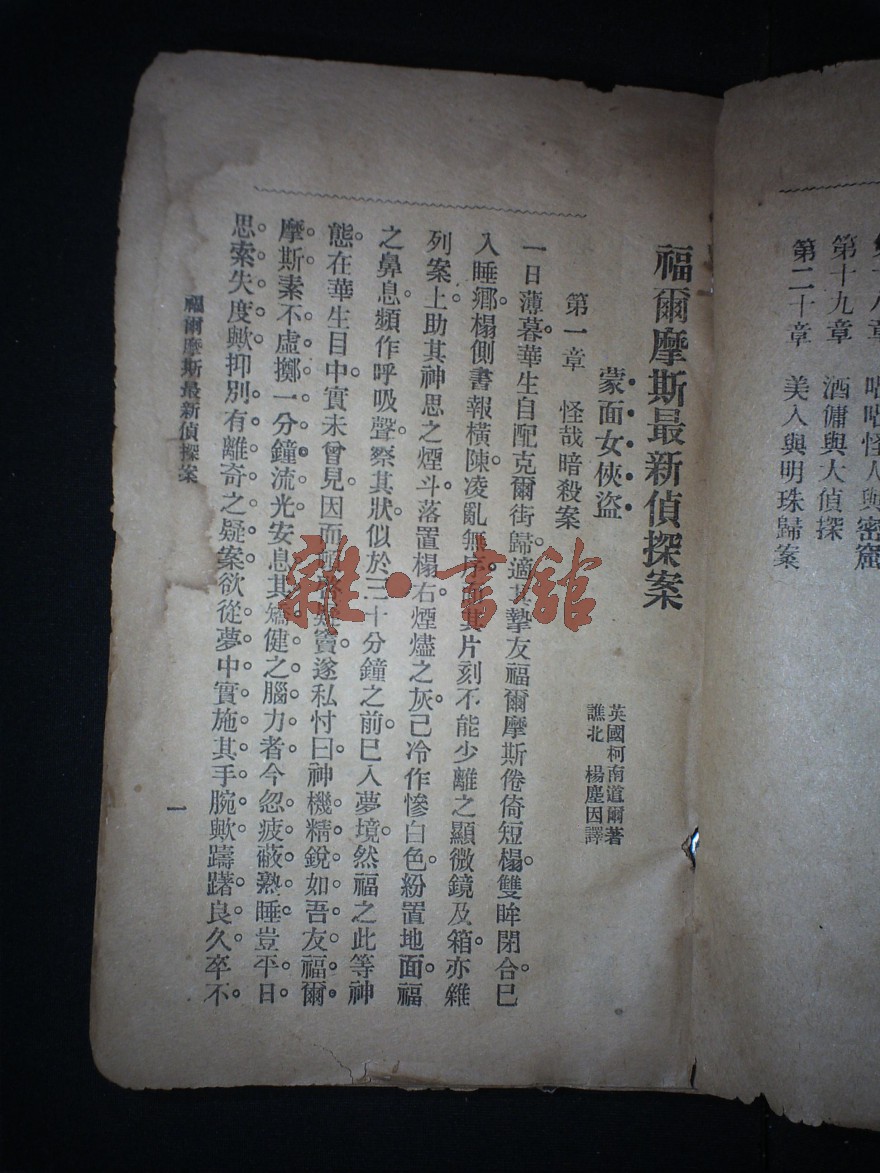 第十九章　酒傭與大偵探
第二十章　美人與明珠歸案
福爾摩斯最新偵探案
蒙面女俠盜
英國柯南道爾著
譙北　楊塵因譯
第一章　怪哉暗殺案
一日薄暮華生自配克爾街歸適其摯友福爾摩斯倦倚短榻雙眸閉合已
入睡鄉榻側書報橫陳凌亂無序其片刻不能少離之顯微鏡及箱亦雜
列案上助其神思之煙斗落置榻右煙燼之灰已冷作慘白色紛置地面福
之鼻息頻作呼吸聲察其狀似於三十分鐘之前已入夢境然福之此等神
態在華生目中實未曾見因而竇遂私忖曰神機精銳如吾友福爾
摩斯素不虛擲一分鐘流光安息其矯健之腦力者今忽疲蔽熟睡豈平日
思索失度歟抑別有離奇之疑案欲從夢中實施其手腕歟躊躇良久卒不
福爾摩斯最新偵探案
一
雜·書館